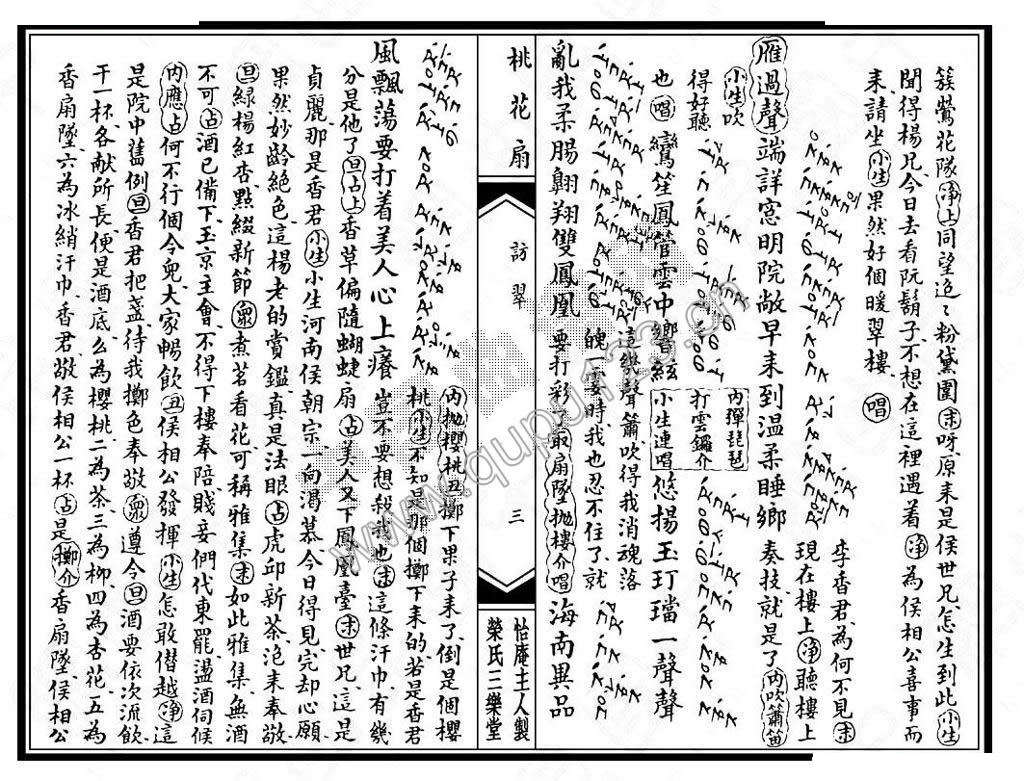 簇鶯花隊淨上同望迄〻粉黛圍末呀原来是侯世兄怎生到此小生
聞得楊兄今日去看阮鬍子不想在這裡遇着淨為侯相公喜事而
来請坐小生果然好個暖翠樓唱
李香君為何不見末
現在樓上淨聽樓上
雁過聲端詳窓明院敞早来到温柔睡鄉
奏技就是了内吹簫笛
小生吹
得好聽
也唱鸞笙鳳管雲中響絃
内彈琵琶
打雲鑼介
小生連唱
悠揚玉玎璫一聲聲
亂我柔腸翱翔雙鳳凰
這幾聲簫吹得我消魂落
魄一霎時我也忍不住了就
要打彩了取扇墜拋樓介唱
海南異品
桃花扇
訪翠
三
怡庵主人製
榮氏三樂堂
風飄蕩要打着美人心上癢
内拋櫻桃丑擲下果子来了倒是個櫻
桃小生不知是那個擲下来的若是香君
豈不要想殺我也末這條汗巾有幾
分是他了旦占上香草偏隨蝴蝶扇占美人又下鳳凰臺末世兄這是
貞麗那是香君小生小生河南侯朝宗一向渴慕今日得見完却心願
果然妙齡絕色這楊老的賞鑑真是法眼占虎邱新茶泡来奉敬
旦綠楊紅杏點綴新節眾煮茗看花可稱雅集末如此雅集無酒
不可占酒已備下玉京主會不得下樓奉陪賤妾們代東罷盪酒伺候
内應占何不行個令兒大家暢飲丑侯相公發揮小生怎敢僭越淨這
是院中舊例旦香君把盞待我擲色奉敬眾遵令旦酒要依次流飲
干一杯各献所長便是酒底么為櫻桃二為茶三為柳四為杏花五為
香扇墜六為冰綃汗巾香君敬侯相公一杯占是擲介香扇墜侯相公
www.qupu123.cn